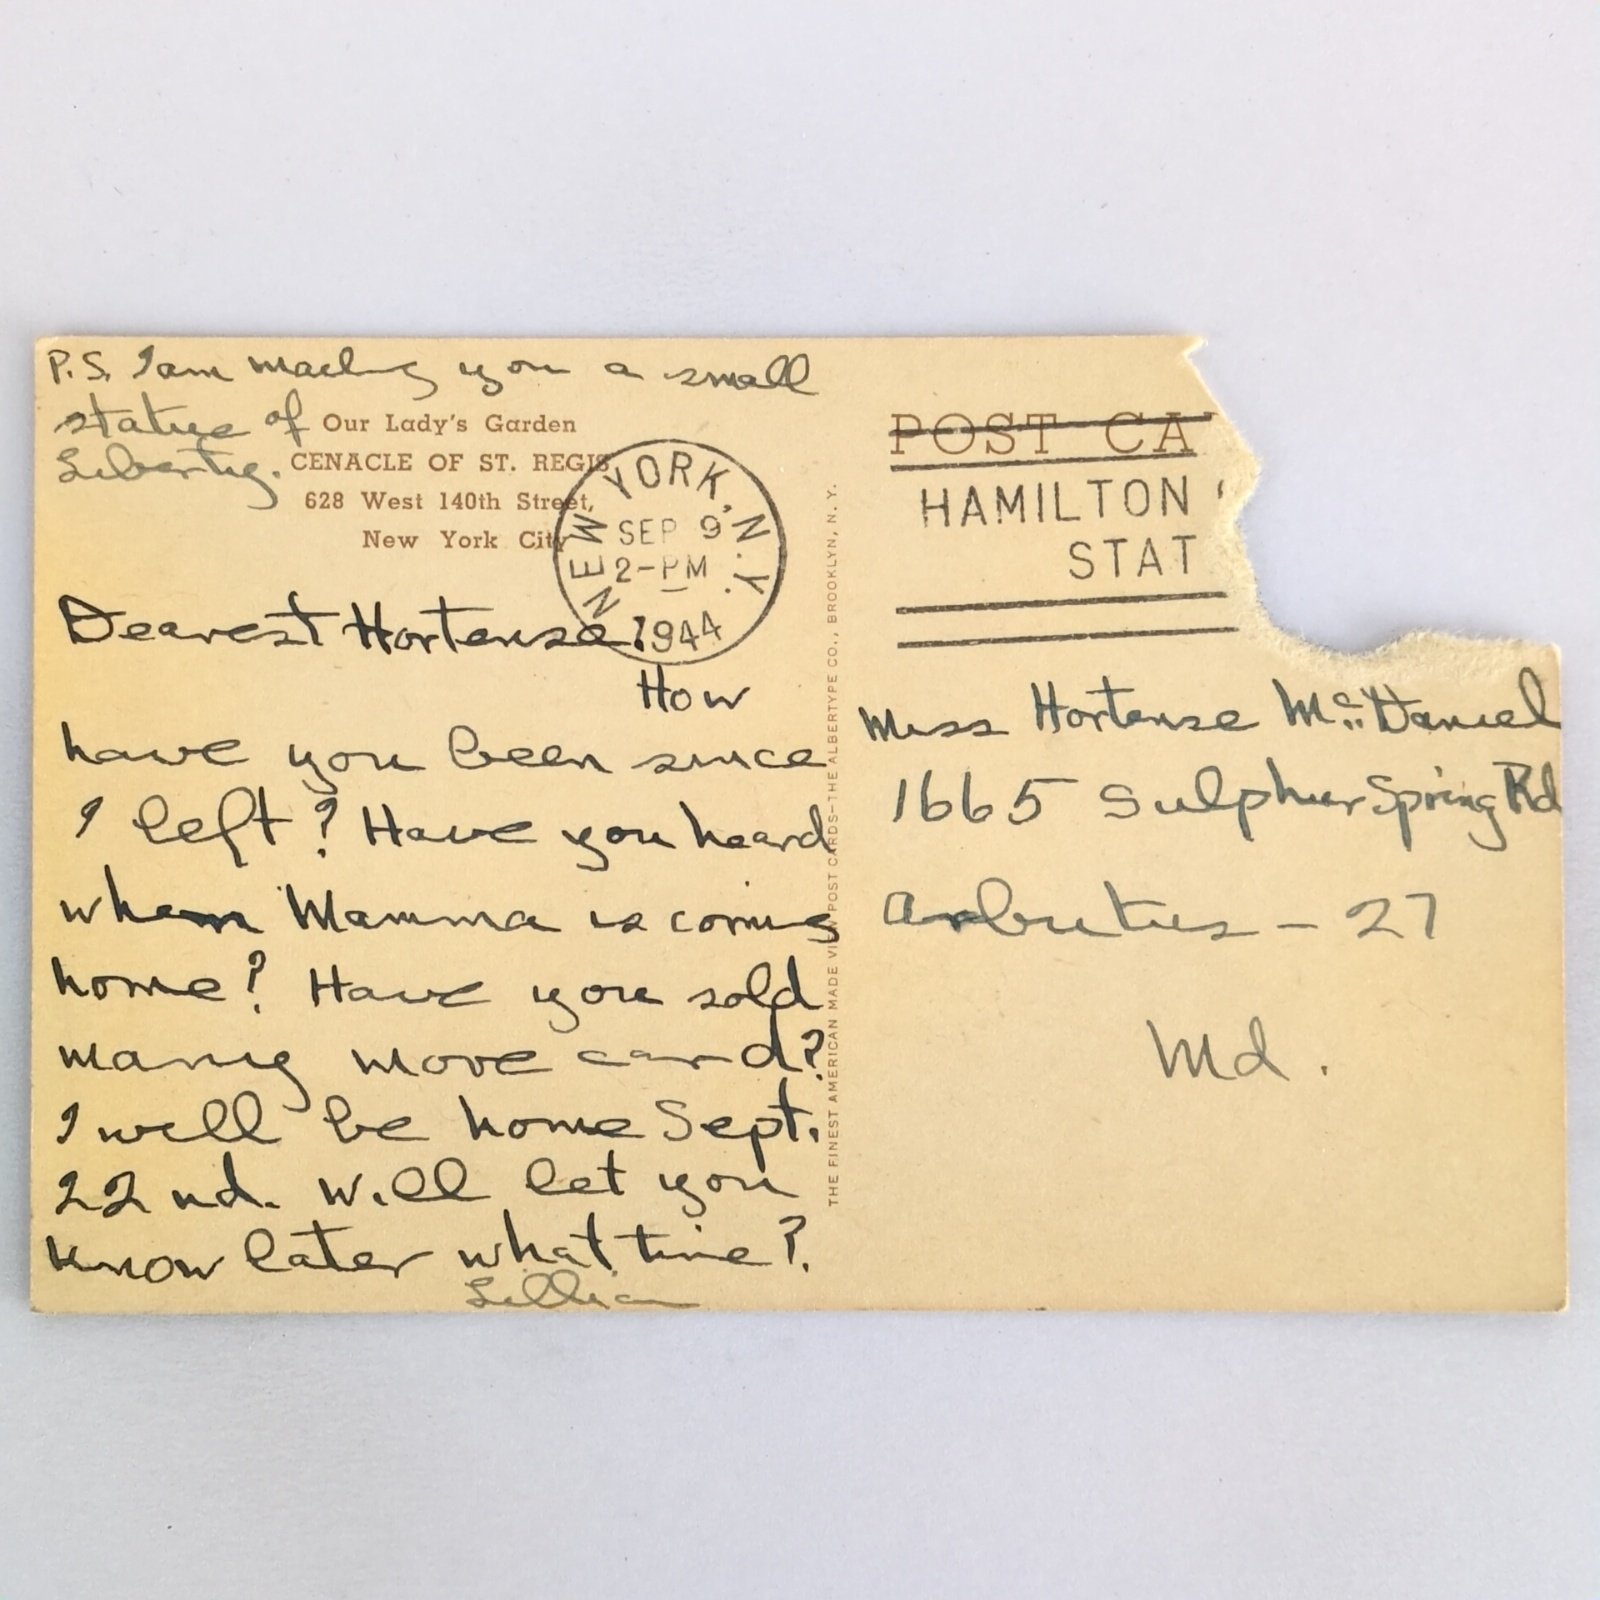 P.S. I am mailing you a small
statue of
Liberty.
Our Lady's Garden
CENACLE OF ST. REGIS
628 West 140th Street,
New York City
NEW YORK, N.Y.
SEP 9
2-PM
1944
Dearest Hortense:
How
have you been since
I left? Have you heard
when Mamma is coming
home? Have you sold
many more card?
I will be home Sept.
22nd. Will let you
know later what time?.
Lillian
THE FINEST AMERICAN MADE VIEW POST CARDS—THE ALBERTYPE CO., BROOKLYN, N. Y.
POST CA
HAMILTON
STAT
Miss Hortense McDaniel
1665 Sulphur Spring Rd
Arbutus - 27
Md.